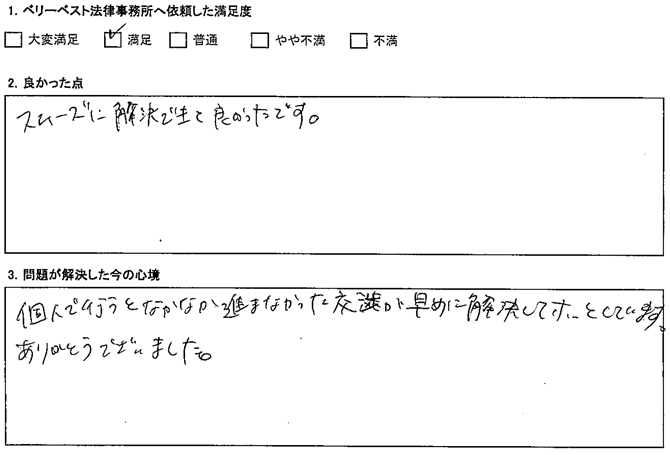 1. ベリーベスト法律事務所へ依頼した満足度
□ 大変満足 ☑ 満足 □ 普通 □ やや不満 □ 不満
2. 良かった点
スムーズに解決でき良かったです。
3. 問題が解決した今の心境
個人で行うとなかなか進まなかった交渉が早めに解決してホッとしています。
ありがとうございました。